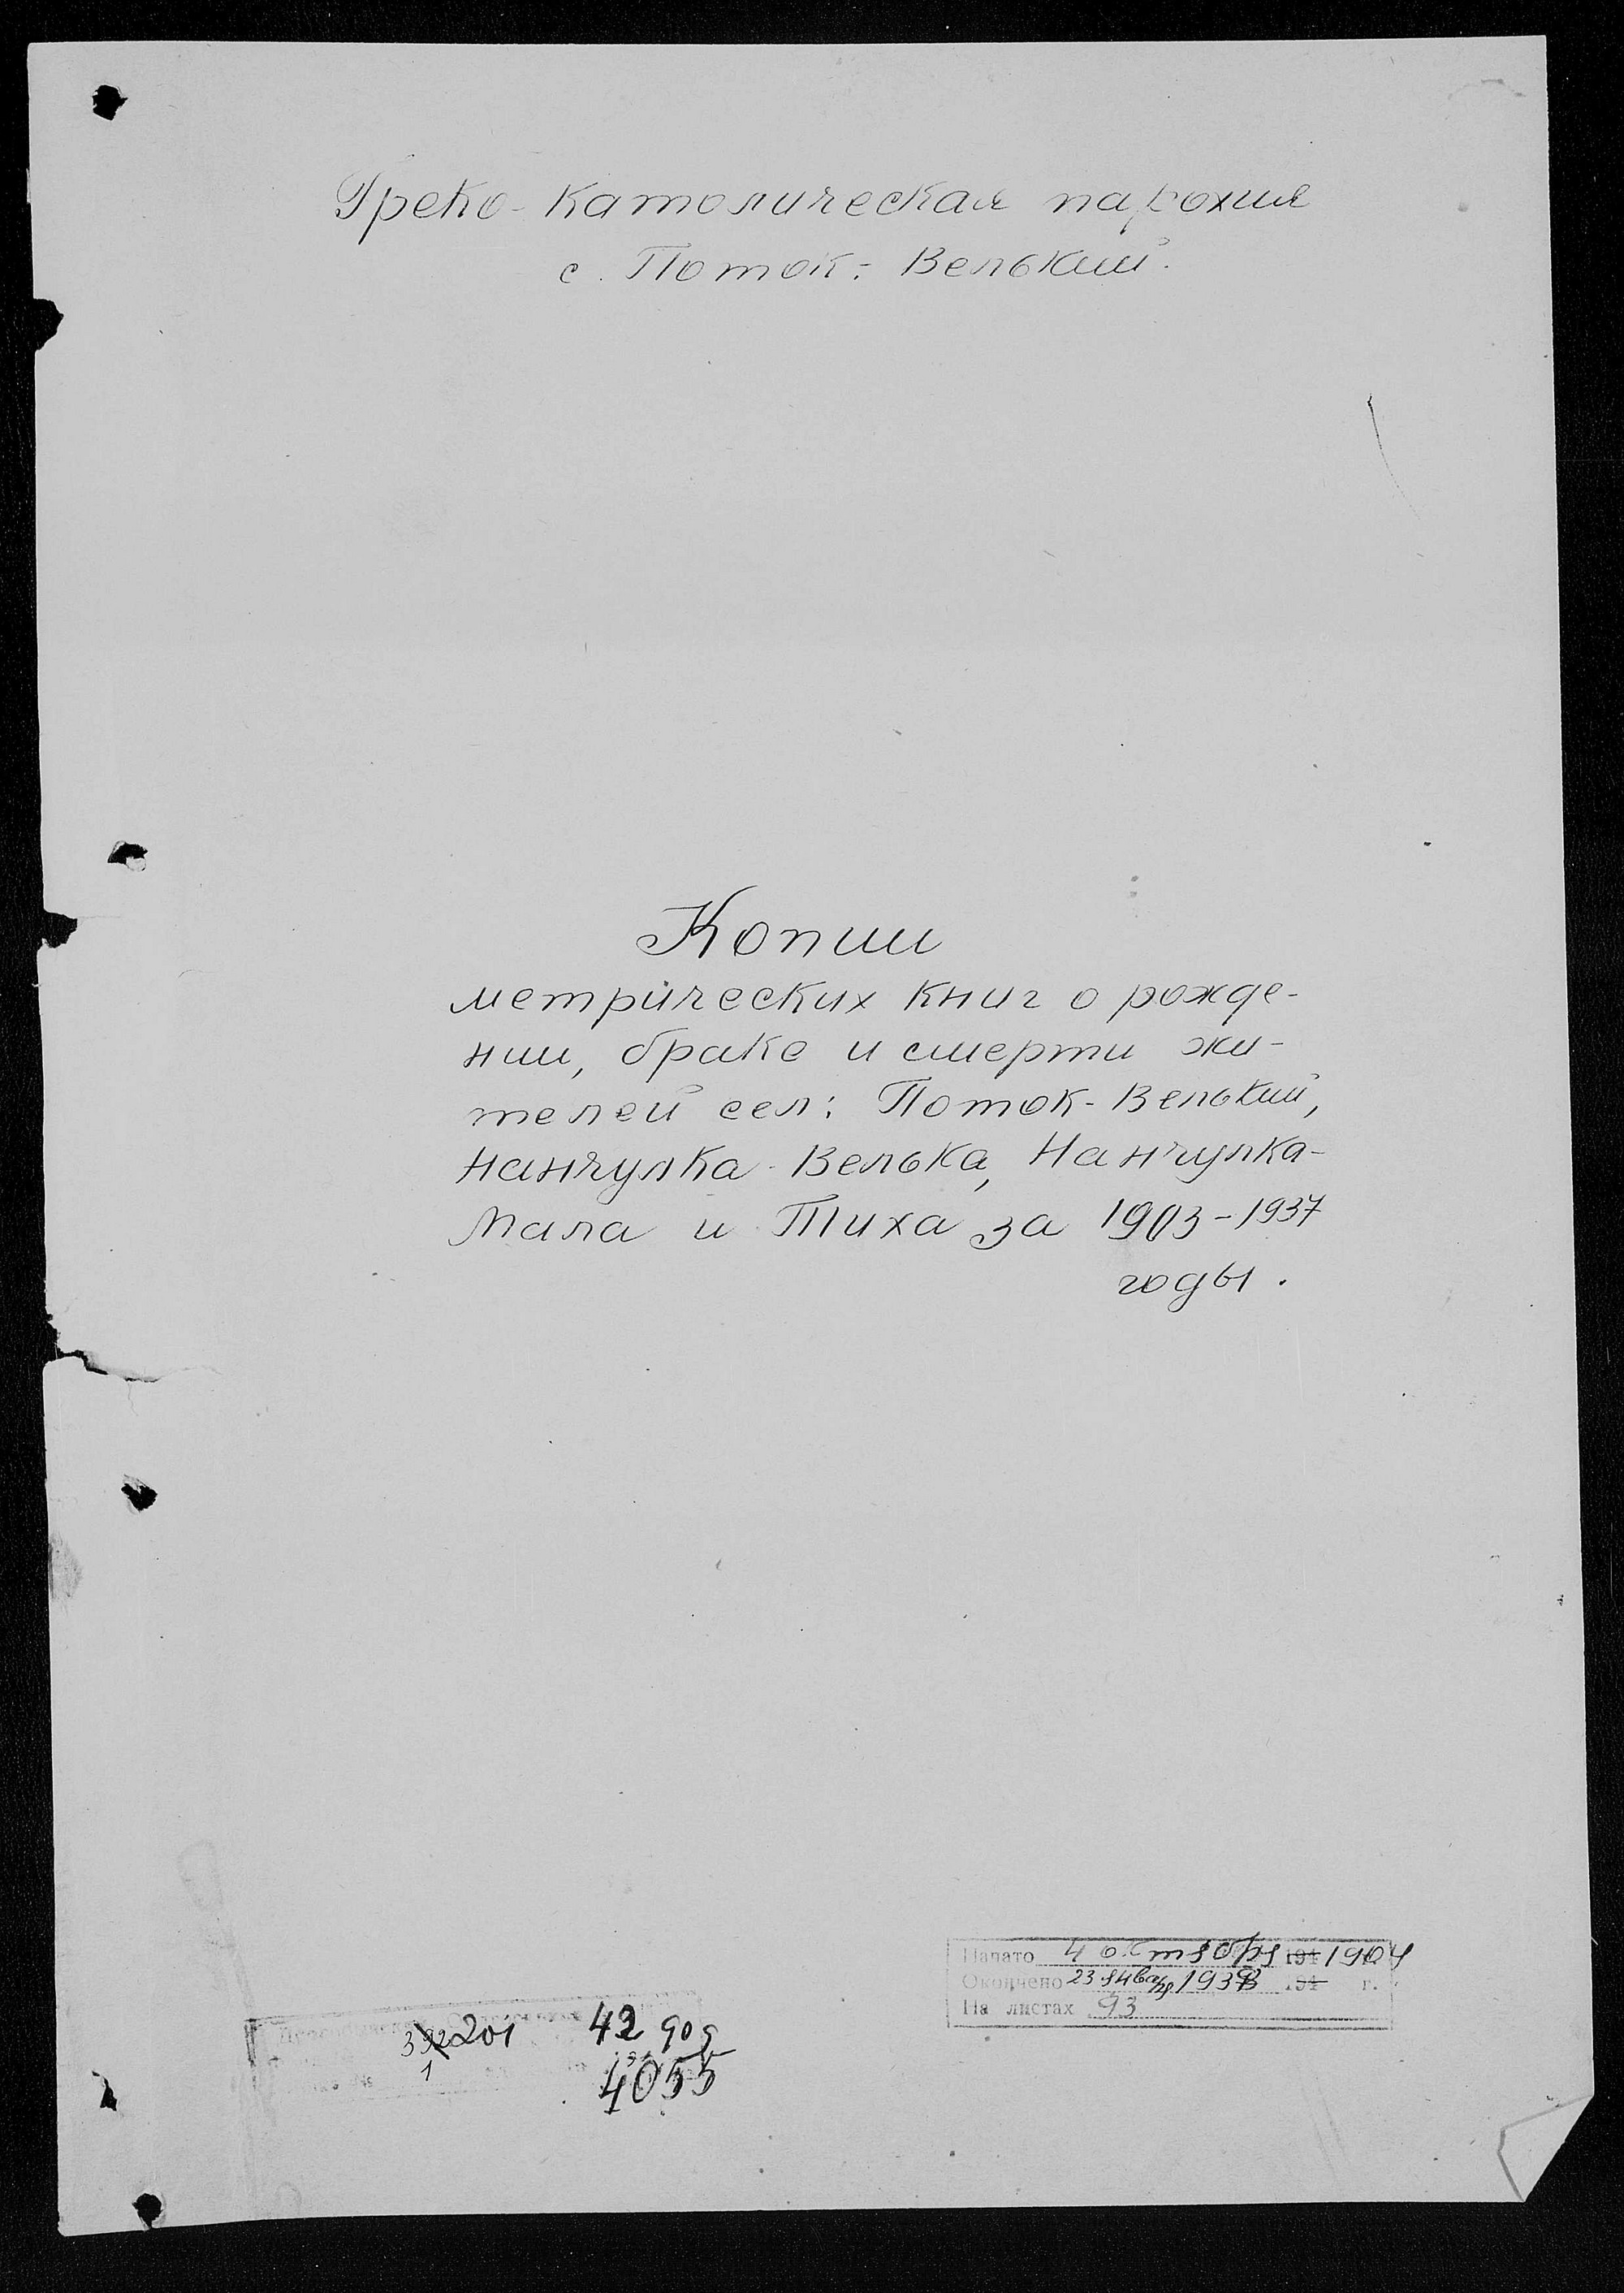 Греко-Католическая парохия
с. Поток-Велький.
Копии
метрических книг о рожде-
нии, браке и смерти жи-
телей сел: Поток-Велький,
Нанчулка-Велька, Нанчулка-
Мала и Тиха за 1903-1937
годы.
Начато 4 октября 194 1904
Окончено 23 января 1938 194 г.
На листах 93
201 42 дод
1
4055